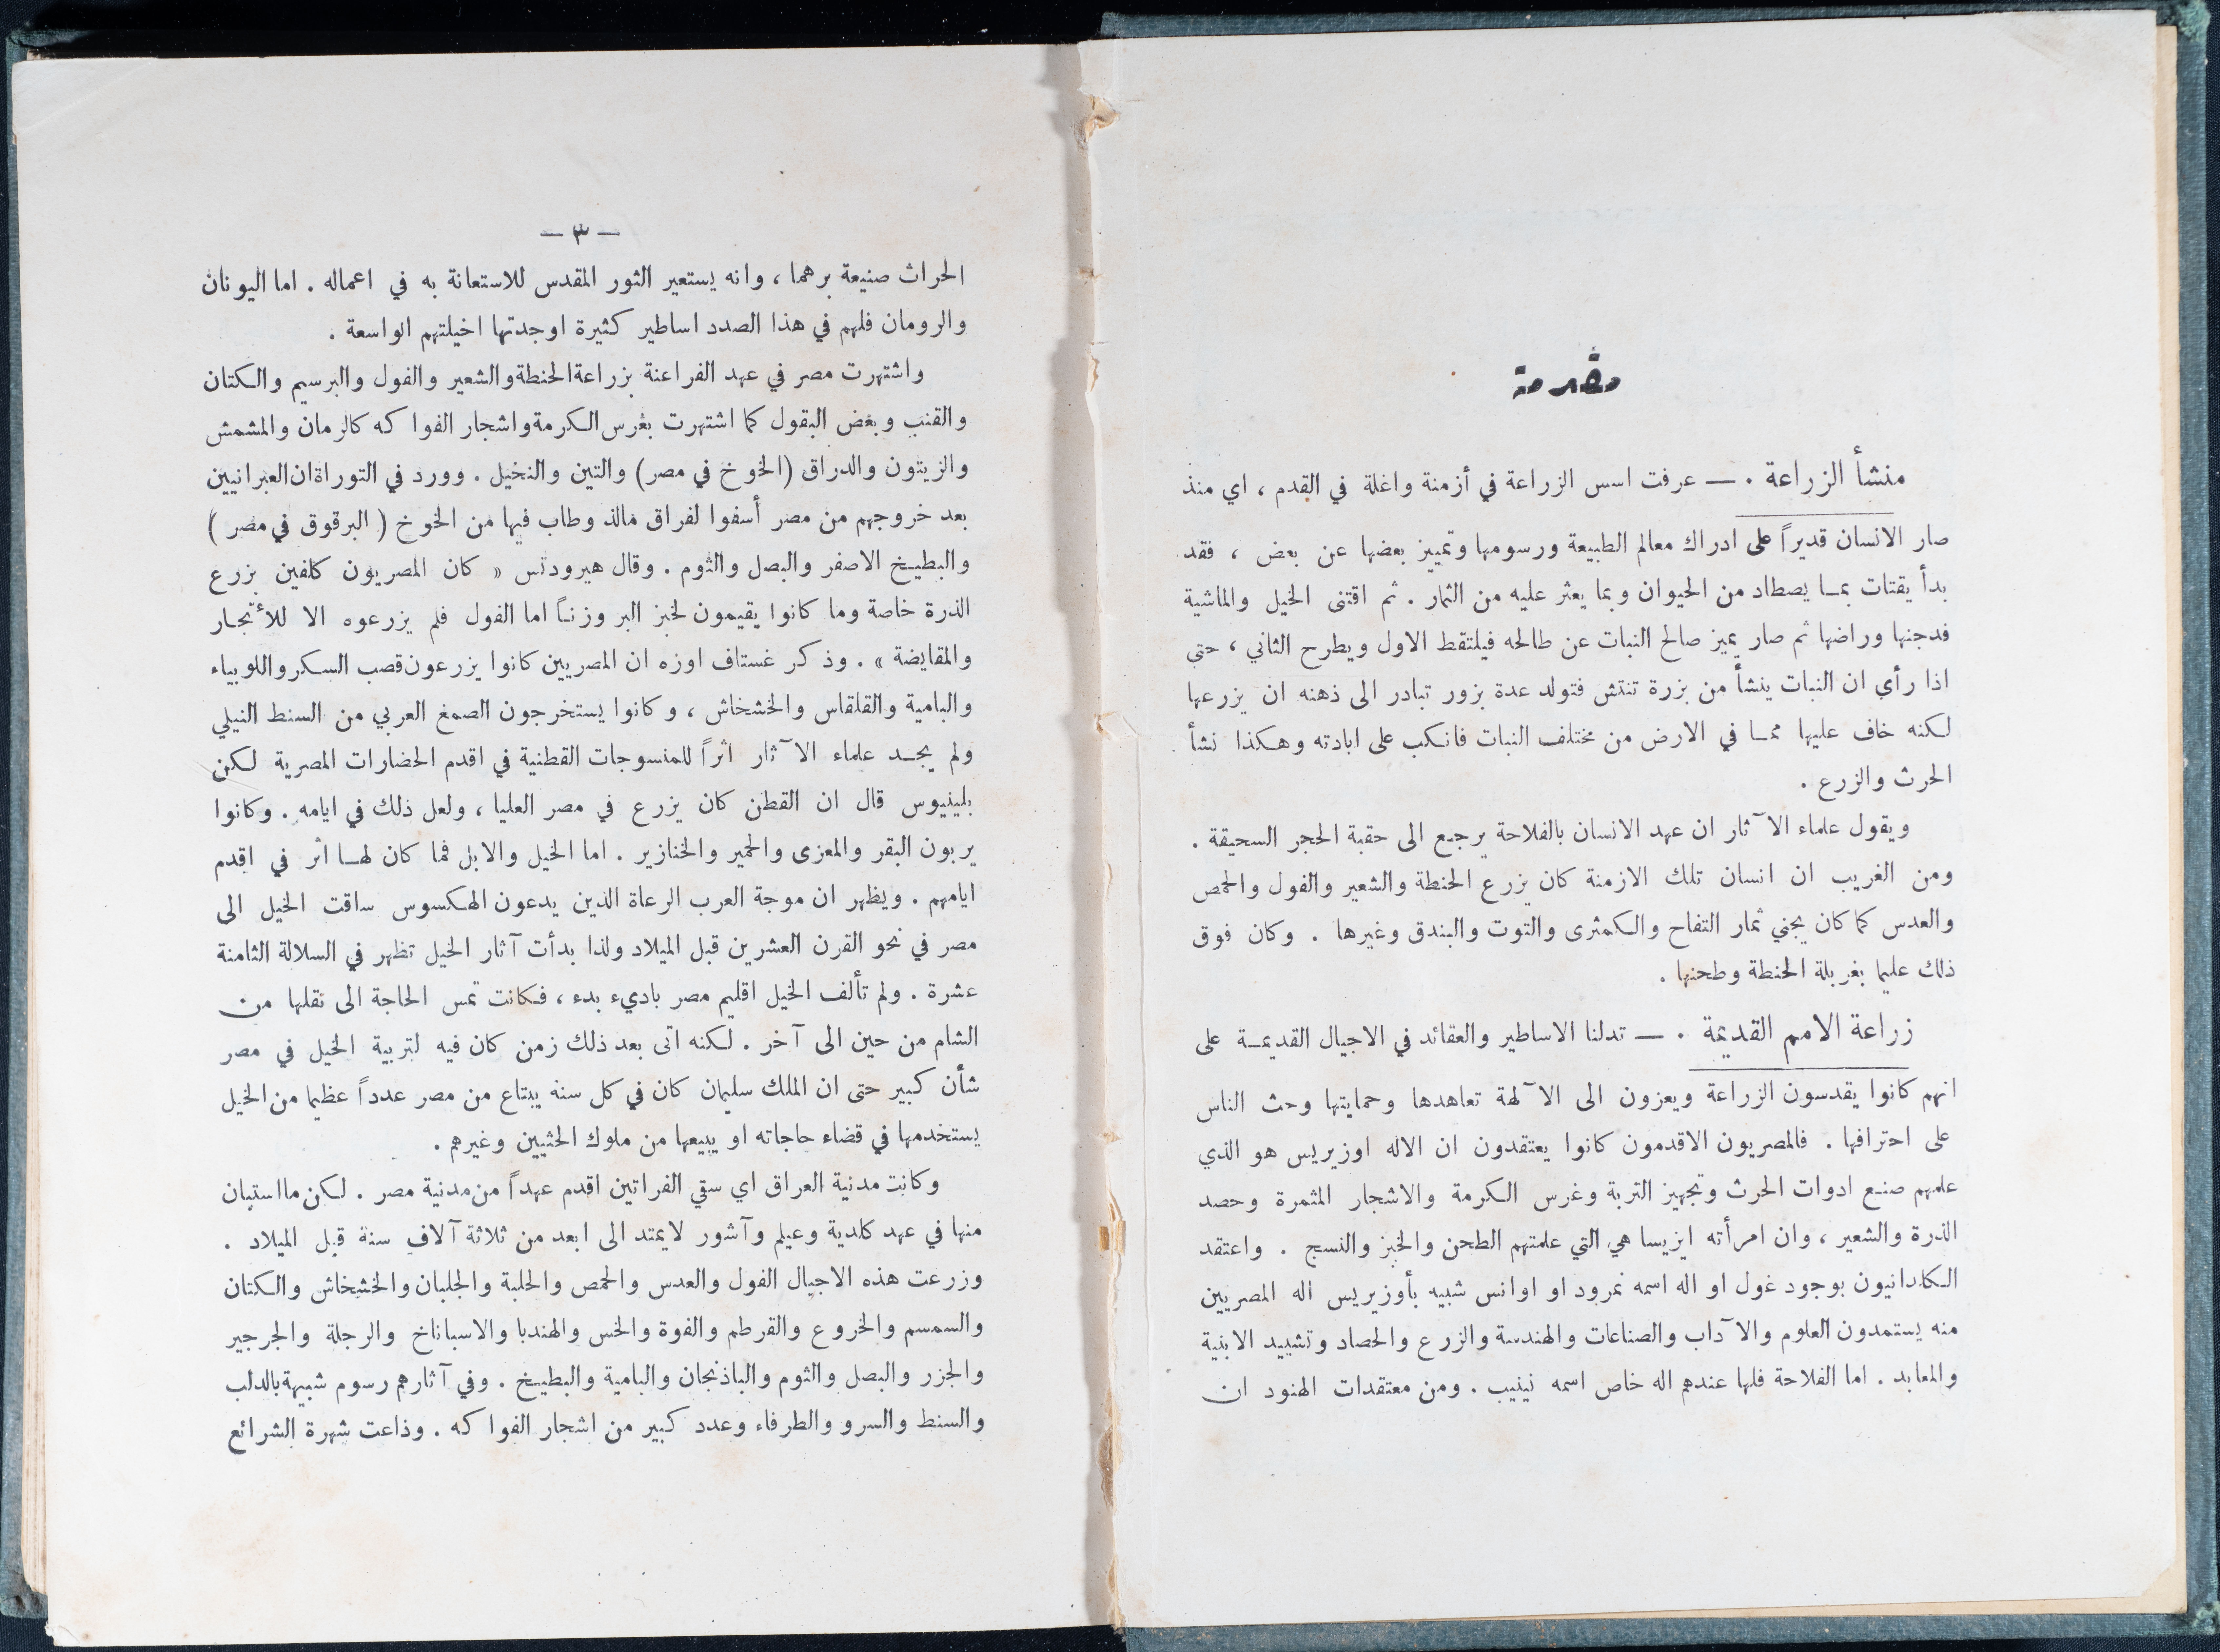 مقدمة
منشأ الزراعة . — عرفت اسس الزراعة في أزمنة واغلة في القدم ، اي منذ
صار الانسان قديراً على ادراك معالم الطبيعة ورسومها وتمييز بعضها عن بعض ، فقد
بدأ يقتات بمـا يصطاد من الحيوان وبما يعثر عليه من الثمار . ثم اقتنى الخيل والماشية
فدجنها وراضها ثم صار يميز صالح النبات عن طالحه فيلتقط الاول ويطرح الثاني ، حتى
اذا رأي ان النبات ينشأ من بزرة تنتش فتولد عدة بزور تبادر الى ذهنه ان يزرعها
لكنه خاف عليها ممـا في الارض من مختلف النبات فانكب على ابادته وهكذا نشأ
الحرث والزرع .
ويقول علماء الآثار ان عهد الانسان بالفلاحة يرجع الى حقبة الحجر السحيقة .
ومن الغريب ان انسان تلك الازمنة كان يزرع الحنطة والشعير والفول والحمص
والعدس كما كان يجني ثمار التفاح والكمثرى والتوت والبندق وغيرها . وكان فوق
ذلك عليما بغربلة الحنطة وطحنها .
زراعة الامم القديمة . — تدلنا الاساطير والعقائد في الاجيال القديمـة على
انهم كانوا يقدسون الزراعة ويعزون الى الآلهة تعاهدها وحمايتها وحث الناس
على احترافها . فالمصريون الاقدمون كانوا يعتقدون ان الاله اوزيريس هو الذي
علمهم صنع ادوات الحرث وتجهيز التربة وغرس الكرمة والاشجار المثمرة وحصد
الذرة والشعير ، وان امرأته ايزيسا هي التي علمتهم الطحن والخبز والنسج . واعتقد
الكلدانيون بوجود غول او اله اسمه نمرود او اوانس شبيه بأوزيريس اله المصريين
منه يستمدون العلوم والآداب والصناعات والهندسة والزرع والحصاد وتشييد الابنية
والمعابد . اما الفلاحة فلها عندهم اله خاص اسمه نينيب . ومن معتقدات الهنود ان
— ٣ —
الحراث صنيعة برهما ، وانه يستعير الثور المقدس للاستعانة به في اعماله . اما اليونان
والرومان فلهم في هذا الصدد اساطير كثيرة اوجدتها اخيلتهم الواسعة .
واشتهرت مصر في عهد الفراعنة بزراعة الحنطة والشعير والفول والبرسيم والكتان
والقنب وبعض البقول كما اشتهرت بغرس الكرمة واشجار الفواكه كالرمان والمشمش
والزيتون والدراق (الخوخ في مصر) والتين والنخيل . وورد في التوراة ان العبرانيين
بعد خروجهم من مصر أسفوا لفراق مالذ وطاب فيها من الخوخ ( البرقوق في مصر )
والبطيخ الاصفر والبصل والثوم . وقال هيرودتس « كان المصريون كلفين بزرع
الذرة خاصة وما كانوا يقيمون لخبز البر وزنـاً اما الفول فلم يزرعوه الا للأتجـار
والمقايضة » . وذكر غستاف اوزه ان المصريين كانوا يزرعون قصب السكر واللوبياء
والبامية والقلقاس والخشخاش ، وكانوا يستخرجون الصمغ العربي من السنط النيلي
ولم يجـد علماء الآثار اثراً للمنسوجات القطنية في اقدم الحضارات المصرية لكن
بلينيوس قال ان القطن كان يزرع في مصر العليا ، ولعل ذلك في ايامه . وكانوا
يربون البقر والمعزى والحمير والخنازير . اما الخيل والابل فما كان لهـا اثر في اقدم
ايامهم . ويظهر ان موجة العرب الرعاة الذين يدعون الهكسوس ساقت الخيل الى
مصر في نحو القرن العشرين قبل الميلاد ولذا بدأت آثار الخيل تظهر في السلالة الثامنة
عشرة . ولم تألف الخيل اقليم مصر باديء بدء ، فكانت تمس الحاجة الى نقلها من
الشام من حين الى آخر . لكنه اتى بعد ذلك زمن كان فيه لتربية الخيل في مصر
شأن كبير حتى ان الملك سليمان كان في كل سنة يبتاع من مصر عدداً عظيما من الخيل
يستخدمها في قضاء حاجاته او يبيعها من ملوك الحثيين وغيرهم .
وكانت مدنية العراق اي سقي الفراتين اقدم عهداً من مدنية مصر . لكن ما استبان
منها في عهد كلدية وعيلم وآشور لايمتد الى ابعد من ثلاثة آلاف سنة قبل الميلاد .
وزرعت هذه الاجيال الفول والعدس والحمص والحلبة والجلبان والخشخاش والكتان
والسمسم والخروع والقرطم والفوة والخس والهندبا والاسباناخ والرجلة والجرجير
والجزر والبصل والثوم والباذنجان والبامية والبطيخ . وفي آثارهم رسوم شبيهة بالدلب
والسنط والسرو والطرفاء وعدد كبير من اشجار الفواكه . وذاعت شهرة الشرائع